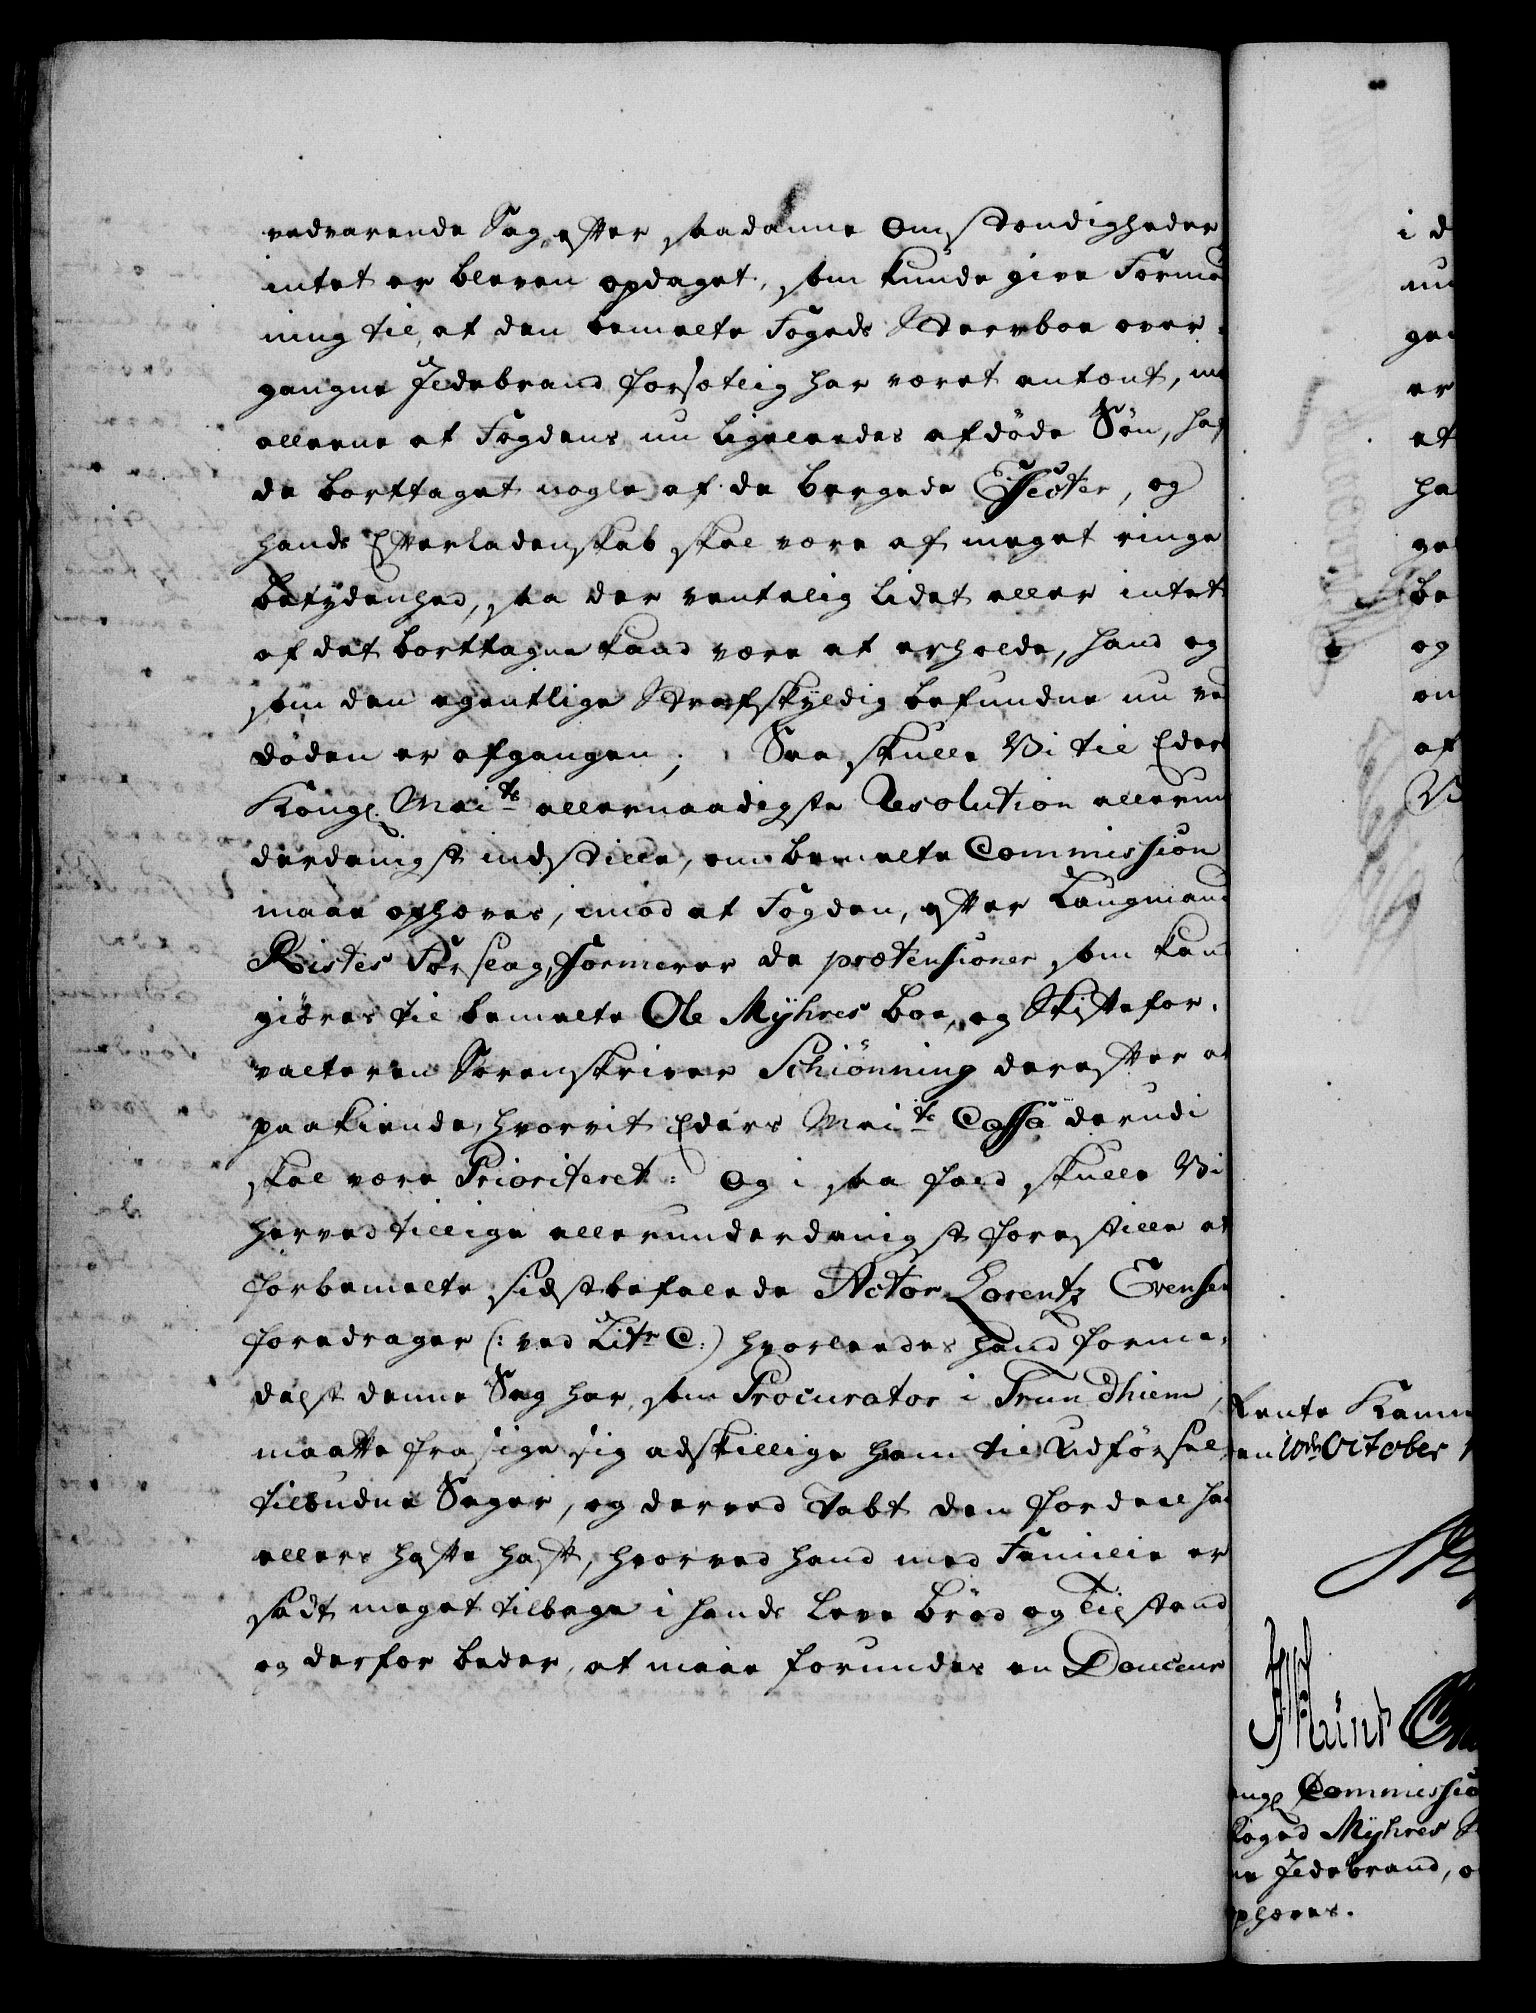 vedvarende Sag, efter saadanne Omstændigheder
intet er bleven opdaget, som kunde give Formo
ning til, at den bemelte Fogeds Sterrboe over-
gangne Ildebrand forsætlig har været antænt, me
alleene at Fogdens nu ligeleedes afdöde Sön, haf
de borttaget nogle af de bergede Effecter, og
hands Efterladenskab skal være af meget ringe
betydenhed, saa der ventelig lidet eller intet
af det borttagne kand være at erholde, hand og
som den egentlige Strafskyldig befundne nu ved
döden er afgangen; Saa skulle Vi til Eders
Kongl. Maits allernaadigste Resolution allerun
derdanigst indstille, om bemelte Commission
maae ophæves, imod at Fogden, efter Laugmand
Ristes Forslag, formerer de prætensioner som kand
giöres til bemelte Ole Myhres boe, og Skiftefor-
valteren Sorenskriver Schiönning derefter at
paakiende, hvorvit Eders Maits Cassa derudi
skal være Prioriteret: Og i saa fald skulle Vi
herved tillige allerunderdanigst forestille at
forbemelte sidstbefalede Actor Lorentz Evensen
foredrager (: ved Litr C:) hvorleedes hand forme-
delst denne Sag har, som Procurator i Trundhiem,
maatte fra sige sig adskillige ham til Udförsel
tilbudne Sager, og derved tabt den fordeel ha
ellers hafte haft, hvorved hand med Familie er
sadt meget tilbage i hands leve bröd og Tilstand
og derfor beder, at maae forundes en Douceur
i d
nu
ger
er
et
ha
ved
be
og
on
af
Vi
Rente Kamm
en 10de October
Münt
ongl Commissio
Foged Myhres
ne Ildebrand, o
phæves.